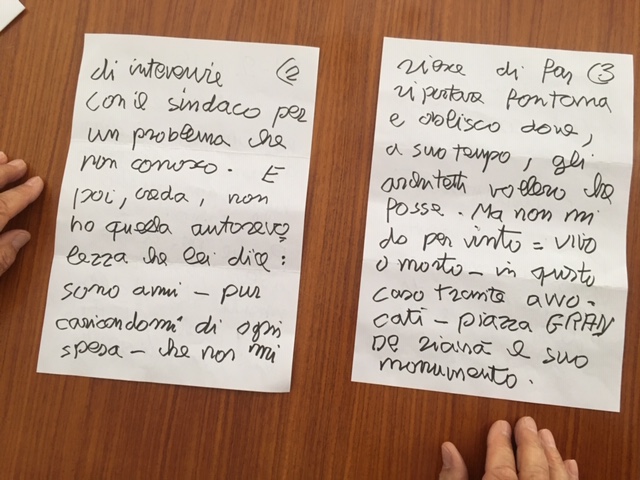 di intervenire (2
con il sindaco per
un problema che
non conosco. E
poi, veda, non
ho quella autorevo
lezza che lei dice:
sono anni - pur
caricandomi di ogni
spesa - che non mi
riesce di far (3
riportare fontana
e obelisco dove,
a suo tempo, gli
architetti vollero che
fosse. Ma non mi
do per vinto = vivo
o morto - in questo
caso tramite avvo-
cati - piazza GRAN
DE riavrà il suo
monumento.